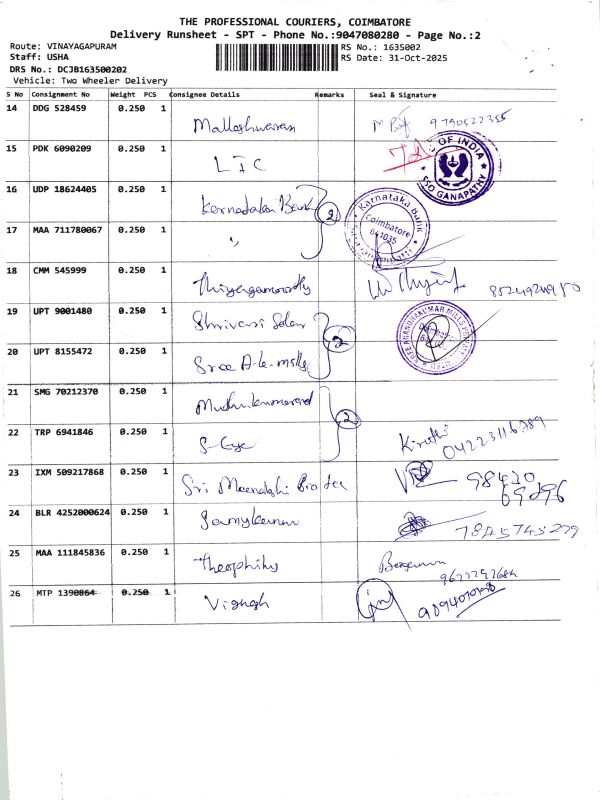 THE PROFESSIONAL COURIERS, COIMBATORE
Delivery Runsheet - SPT - Phone No.:9047080280 - Page No.:2
Route: VINAYAGAPURAM
RS No.: 1635002
Staff: USHA
RS Date: 31-Oct-2025
DRS No.: DCJB163500202
Vehicle: Two Wheeler Delivery
S No Consignment No Weight PCS Consignee Details Remarks Seal & Signature
14 DDG 528459 0.250 1 Malleshwaran
15 PDK 6090209 0.250 1 LIC
OF INDIA
SSO GANAPATHY
16 UDP 18624405 0.250 1 Karnataka Bank 2
Karnataka Bank
Coimbatore
641035
17 MAA 711780067 0.250 1 "
18 CMM 545999 0.250 1 Thiyagamoorthy
19 UPT 9001480 0.250 1 Shrivari Solar 2
20 UPT 8155472 0.250 1 Sree A.k. mills
21 SMG 70212370 0.250 1 2
22 TRP 6941846 0.250 1 Kiruthi
04223116789
23 IXM 509217868 0.250 1 Sri Meenakshi Bio tec 98420
69896
24 BLR 4252000624 0.250 1 7845745279
25 MAA 111845836 0.250 1 Theophilus
26 MTP 1390864 0.250 1 Vignesh